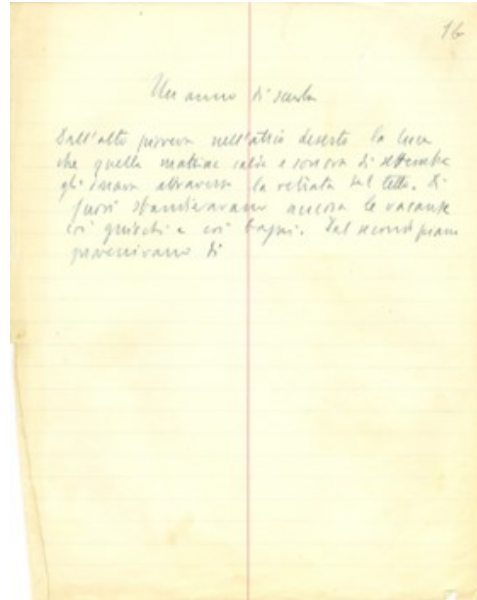 16
Un anno di scuola
Dall'alto pioveva nell'atrio deserto la luce
che quella mattina calda e sonora di settembre
gli inviava attraverso la vetrata del tetto. Di
fuori sbandieravano ancora le vacanze
coi giuochi e coi bagni. Dal secondo piano
provenivano di